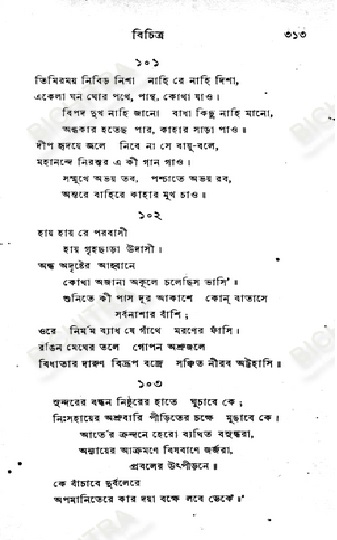 বিচিত্র ৩১৩
১০১
তিমিরময় নিবিড় নিশা নাহি রে নাহি দিশা,
একেলা ঘন ঘোর পথে, পান্থ, কোথা যাও।
বিপদ দুখ নাহি জানো বাধা কিছু নাহি মানো,
অন্ধকার হতেছ পার, কাহার সাড়া পাও॥
দীপ হৃদয়ে জলে নিবে না সে বায়ু-বলে,
মহানন্দে নিরন্তর এ কী গান গাও।
সম্মুখে অভয় তব, পশ্চাতে অভয় রব,
অন্তরে বাহিরে কাহার মুখ চাও॥
১০২
হায় হায় রে পরবাসী
হায় গৃহছাড়া উদাসী।
অন্ধ অদৃষ্টের আহ্বানে
কোথা অজানা অকূলে চলেছিস ভাসি'॥
শুনিতে কী পাস দূর আকাশে কোন্ বাতাসে
সর্বনাশার বাঁশি;
ওরে নির্মম ব্যাধ যে গাঁথে মরণের ফাঁসি।
রঙিন মেঘের তলে গোপন অশ্রুজলে
বিধাতার দারুণ বিদ্রূপ বজ্রে সঞ্চিত নীরব অট্টহাসি॥
১০৩
সুন্দরের বন্ধন নিষ্ঠুরের হাতে ঘুচাবে কে;
নিঃসহায়ের অশ্রুবারি পীড়িতের চক্ষে মুছাবে কে॥
আর্তের ক্রন্দনে হেরো ব্যথিত বসুন্ধরা,
অন্যায়ের আক্রমণে বিষবাণে জর্জরা,
প্রবলের উৎপীড়নে॥
কে বাঁচাবে দুর্বলেরে
অপমানিতেরে কার দয়া বক্ষে লবে ডেকে॥'